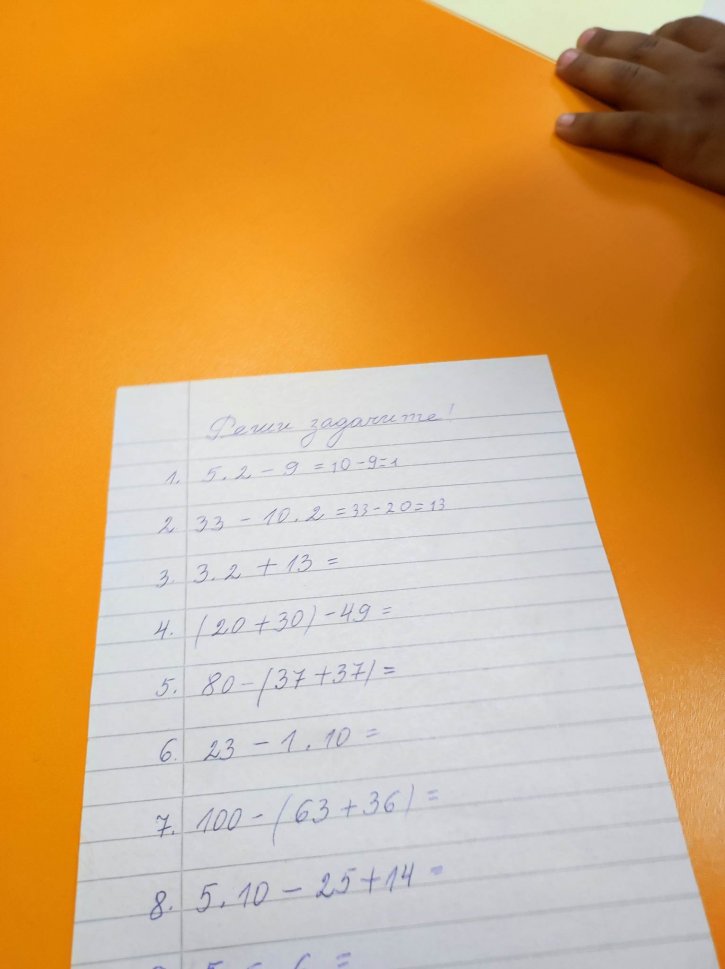 Реши задачите!
1. 5.2 - 9 = 10-9=1
2 33 - 10.2 = 33-20=13
3. 3.2 + 13 =
4. (20+30)-49=
5. 80-(37+37)=
6. 23 - 1.10 =
7. 100-(63+36)=
8. 5.10 - 25+14 =